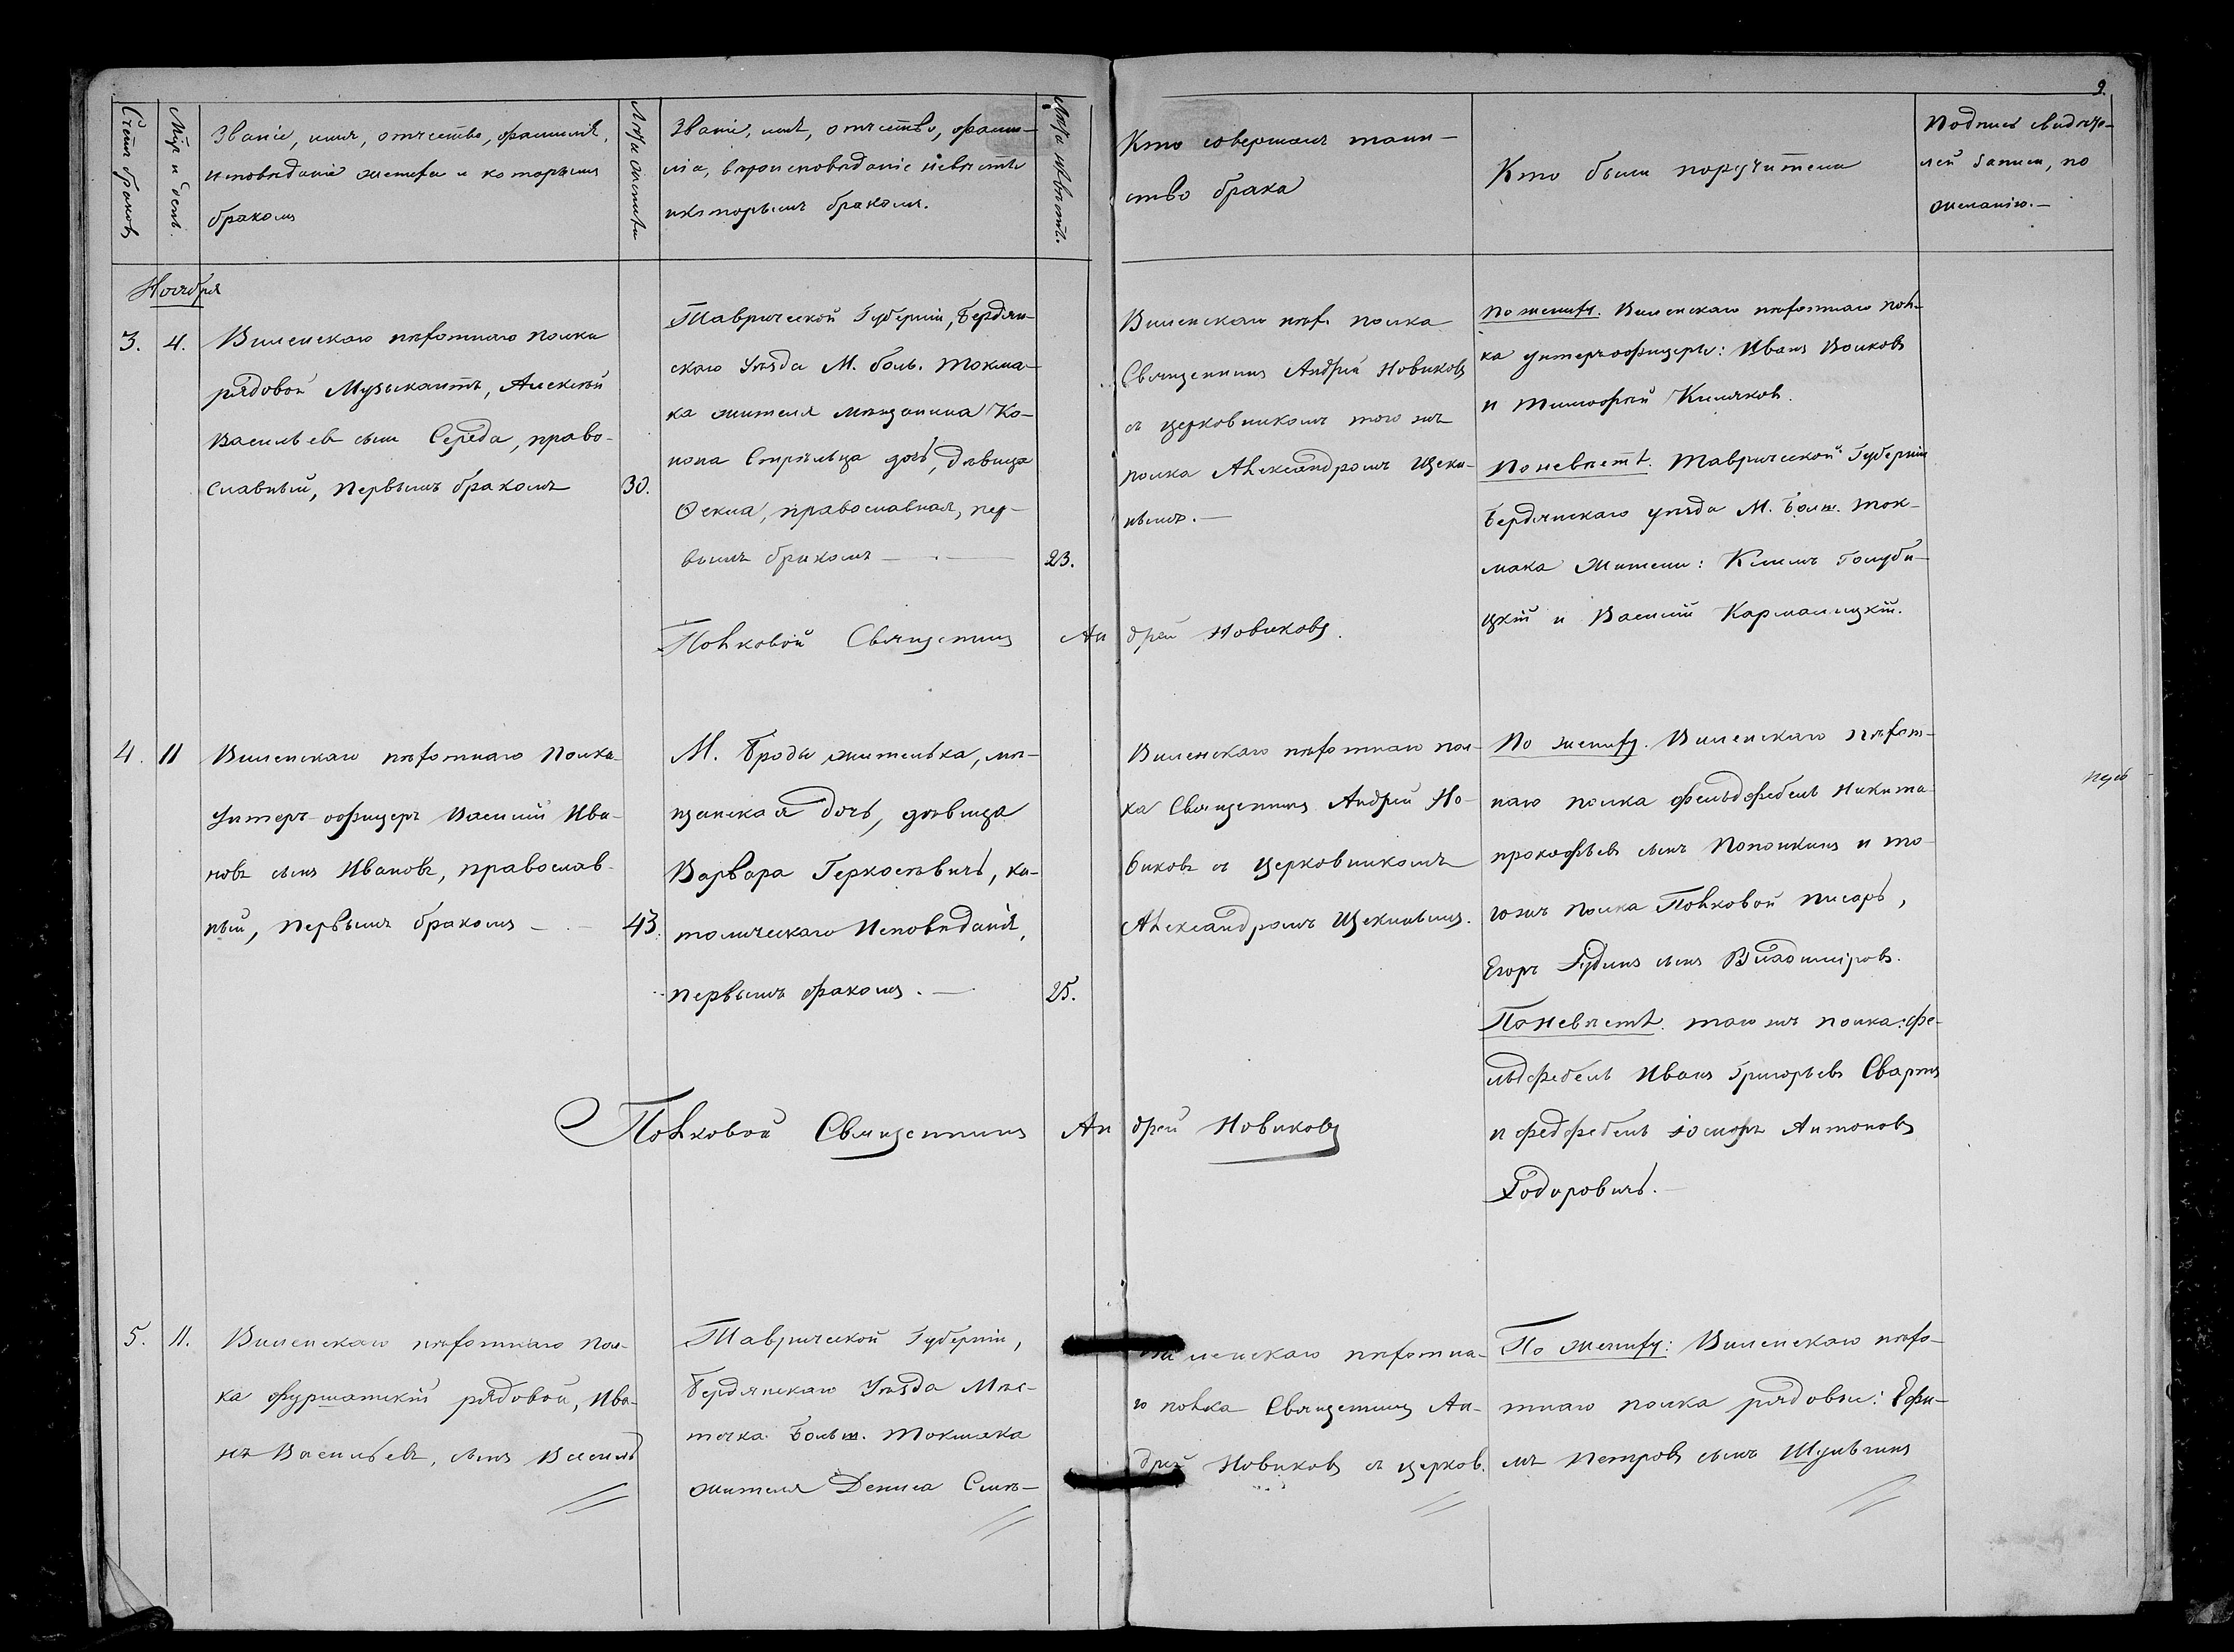 9.
Счетъ браковъ
Мѣс. и день.
Званіе, имя, отчество, фамилія,
исповѣданіе жениха и которымъ
бракомъ
Лѣта жениха
Званіе, имя, отчество, фами-
лія, вѣроисповѣданіе невѣсты
и которымъ бракомъ.
Лѣта невѣсты.
Кто совершалъ таин-
ство брака
Кто были поручители
Подпись свидѣте-
лей записи, по
желанію.—
Ноября
3.
4.
Виленскаго пѣхотнаго полка
рядовой Музыкантъ, Алексѣй
Васильевъ сынъ Середа, право-
славный, первымъ бракомъ
30.
Таврической Губерніи, Бердян-
скаго Уѣзда М. боль. Токма-
ка жителя мѣщанина Ко-
нона Стрѣльца дочь, дѣвица
Ѳекла, православная, пер-
вымъ бракомъ —
23.
Виленскаго пѣх. полка
Священникъ Андрей Новиковъ
съ церковникомъ того жъ
полка Александромъ Щеки-
нымъ.—
По жениху. Виленскаго пѣхотнаго пол-
ка унтеръ-офицеры: Иванъ Волковъ
и Тимофѣй Киляковъ.
По невѣстѣ. Таврической Губерніи
Бердянскаго уѣзда М. Больш. Ток-
мака жители: Климъ Голуби-
цкій и Василій Кармалицкій.
Полковой Священникъ Андрей Новиковъ.
4.
11
Виленскаго пѣхотнаго Полка
Унтеръ-офицеръ Василій Ива-
новъ сынъ Ивановъ, православ-
ный, первымъ бракомъ —
43.
М. Броды жителька, мѣ-
щанская дочь, дѣвица
Варвара Геркосевичъ, ка-
толическаго Исповѣданія,
первымъ бракомъ. —
25.
Виленскаго пѣхотнаго пол-
ка Священникъ Андрей Но-
виковъ съ церковникомъ
Александромъ Щекинымъ.
По жениху. Виленскаго пѣхот-
наго полка фельдфебель Никита
Прокофьевъ сынъ Попошкинъ и то-
гожъ полка Полковой писарь,
Егоръ сынъ Владиміровъ.
По невѣстѣ. того жъ полка: фе-
льдфебель Иванъ Григорьевъ Сварта
и федфебель Антоновъ
Ѳодоровичъ.—
Полковой Священникъ Андрей Новиковъ
5.
11.
Виленскаго пѣхотнаго пол-
ка фурштатскій рядовой, Ива-
нъ Васильевъ, сынъ Василь
Таврической Губерніи,
Бердянскаго Уѣзда Мѣс-
течка Больш. Токмака
жителя Дениса Слив-
Виленскаго пѣхотна-
го полка Священникъ Ан-
дрей Новиковъ съ церков.
По жениху: Виленскаго пѣхо-
тнаго полка рядовые: Ефи-
мъ Петровъ сынъ Шульгинъ